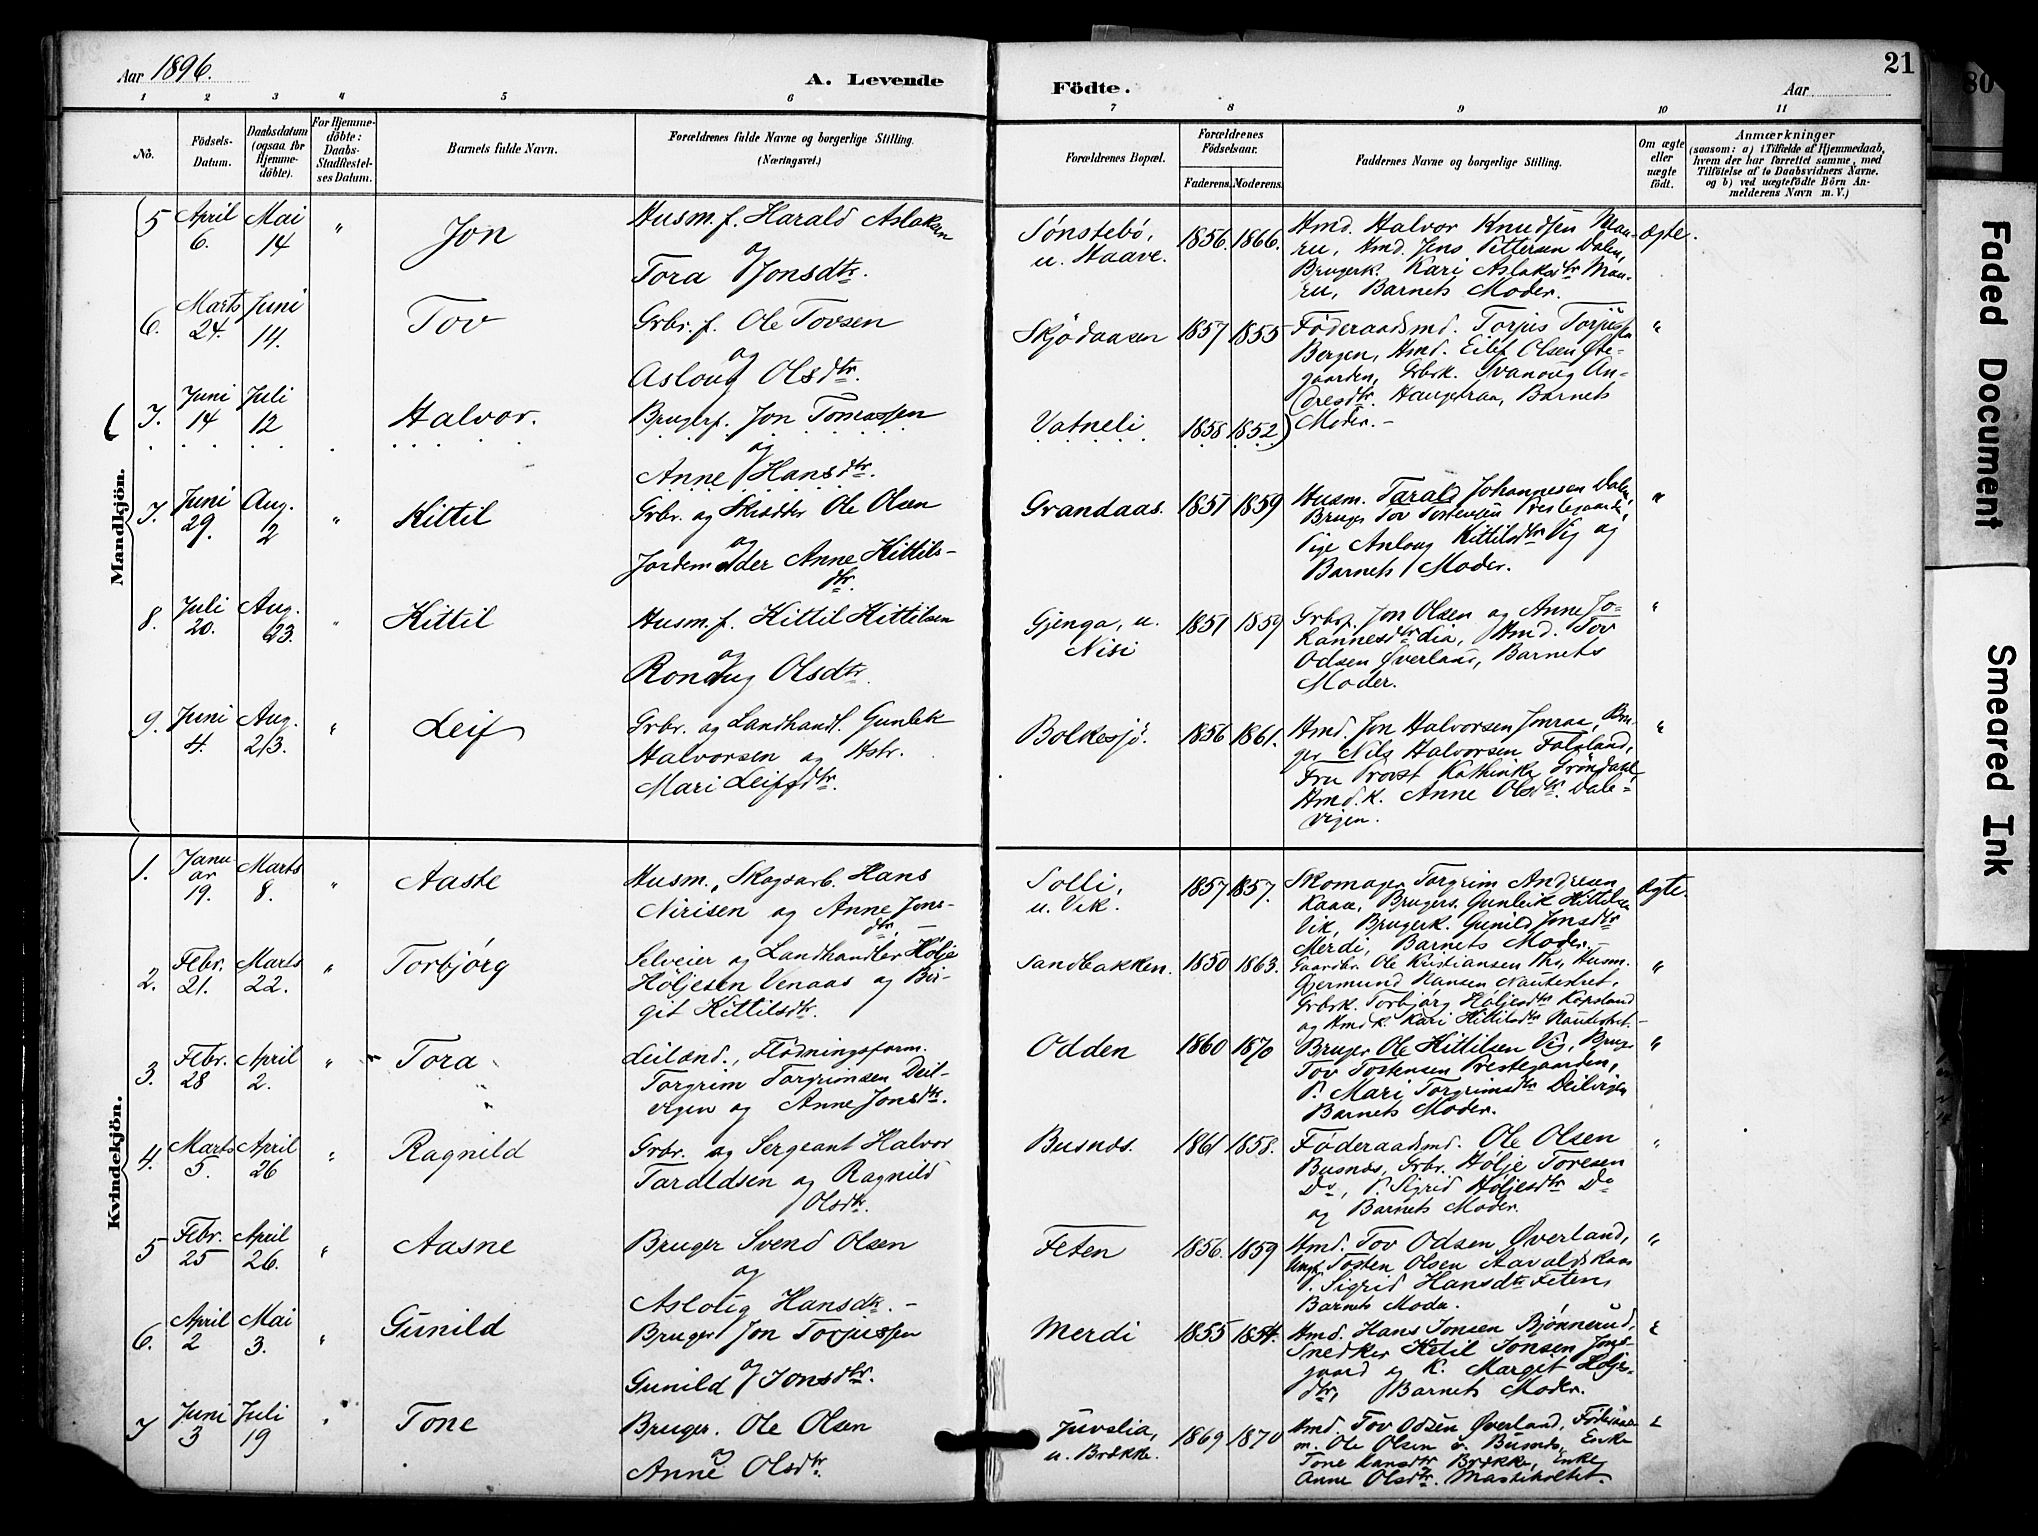 Aar 1896.
A. Levende
Födte.
Aar
21
1 2 3 4 5 6 7 8 9 10 11
No.
Födsels-
Datum.
Daabsdatum
(ogsaa for
Hjemme-
döbte).
For Hjemme-
döbte:
Daabs-
Stadfæstel-
ses Datum.
Barnets fulde Navn.
Forældrenes fulde Navne og borgerlige Stilling.
(Næringsvei.)
Forældrenes Bopæl.
Forældrenes
Födselsaar.
Faderens. Moderens.
Faddernes Navne og borgerlige Stilling.
Om ægte
eller
uægte
födt.
Anmærkninger
(saasom: a) i Tilfælde af Hjemmedaab,
hvem der har forrettet samme, med
Tilföielse af to Daabsvidners Navne.
og b) ved uægtefödte Börn An-
melderens Navn m. V.)
Mandkjön.
5 April 6. Mai 14 " Jon
Husm. f. Harald Aslaksen
og
Tora Jonsdtr.
Sønstebö,
u. Haave.
1856. 1866.
Hmd. Halvor Knudsen Mau-
ru, Hmd. Jens Pettersen Dalen,
Brugerk. Kari Aslaksdtr Mau-
ru, Barnets Moder.
ægte.
6. Marts 24. Juni 14. Tov
Grbr. f. Ole Tovsen
og
Asloug Olsdtr.
Skjödaasen
1857 1855
Føderaadsmd. Torjus Torjussen
Bergen, Hmd. Eilef Olsen Øte-
gaarden, Grbrk. Svanoug An-
dresdtr. Haugetraa, Barnets
Moder. -
"
7. Juni 14 Juli 12 Halvor.
Brugerf. Jon Tomassen
og
Anne Hansdtr.
Vatneli
1858 1852
7. Juni 29. Aug. 2 " Kittil
Grbr. og Skrædder Ole Olsen
og
Jordemoder Anne Kittils-
dtr.
Grandaas.
1851 1859
Husm. Tarald Johannesen Dalen,
Bruger Tov Tostensen Prestegaarden,
Pige Anloug Kittilsdtr Vig og
Barnets Moder.
"
8. Juli 20. Aug. 23. " Kittil
Husm. f. Kittil Kittilsen
og
Ronaug Olsdtr.
Gjenga, u.
Nisi
1851 1859
Grbrf. Jon Olsen og Anne Jo-
hannesdtr Lia, Hmd. Tov
Odsen Øverland, Barnets
Moder.
"
9. Juni 4. Aug. 23. " Leif
Grbr. og Landhandl. Gunlek
Halvorsen og Hstr.
Mari Leifsdtr.
Bolkesjö.
1856 1861.
Hmd. Jon Halvorsen Jonraa, Bru-
ger Nils Halvorsen Falaland,
Fru Provst Kathinka Gröndahl,
Hmd. K. Anne Olsdtr. Dale-
vigen.
"
Kvindekjön.
1. Janu-
ar 19. Marts 8. " Aaste
Husm., Skogsarb. Hans
Nirisen og Anne Jons-
dtr. -
Solli,
u. Vik.
1857 1857.
Skomager Torgrim Andresen
Kaaa, Brugers. Gunleik Kittilsen
Vik, Brugerk. Gunild Jonsdtr
Merdi, Barnets Moder. -
ægte.
2. Febr. 21. Marts 22. " Torbjörg
Selveier og Landhandler Hölje
Höljesen Venaas og Bir-
git Kittilsdtr.
Sandbakken.
1850 1863.
Gaardbr. Ole Kristiansen Tho, Husm.
Gjermund Hansen Nautestret,
Grbrk. Torbjørg Höljesdtr Kopsland
og Hmd K. Kari Kittilsdtr Nautestret. -
"
3. Febr. 28 April 2. " Tora
Leilænd., Flödningsform.
Torgrim Torgrimsen Deil-
vigen og Anne Jonsdtr.
Odden
1860 1870
Bruger Ole Kittilsen Vig, Bruger
Tov Tostensen Prestegaarden,
P. Mari Torgrimsdtr Deilvigen
Barnets Moder.
"
4. Marts 5. April 26 " Ragnild
Grbr. og Sergeant Halvor
Taraldsen og Ragnild
Olsdtr.
Busnæs.
1861 1858.
Føderaadsmd. Ole Olsen
Busnæs, Grbr. Hölje Toresen
Do, P. Sigrid Höljesdtr Do
og Barnets Moder.
"
5 Febr. 25 April 26. " Aasne
Bruger Svend Olsen
og
Asloug Hansdtr. -
Feten
1856. 1859
Hmd. Tov Odsen Øverland,
Ungk. Tosten Olsen Aavaldskaas
P. Sigrid Hansdtr Feten,
Barnets Moder.
"
6. April 2 Mai 3. " Gunild
Bruger Jon Torjussen
og
Gunild Jonsdtr.
Merdi
1855 1854.
Hmd. Hans Jonsen Bjønnerud,
Snedker Ketil Jonsen Jons-
gaard og K. Margit Höljes-
dtr, Barnets Moder.
"
7 Juni 3 Juli 19 " Tone
Bruger. Ole Olsen
og
Anne Olsdtr.
Juvslia,
u. Brække.
1869 1870
Hmd Tov Odsen Øverland, Föderaads-
m. Ole Olsen v. Busnæs, Enke
Tone Hansdtr Brække, Enke
Anne Olsdtr. Masteboltet.
"
Faded Document
Smeared Ink
80